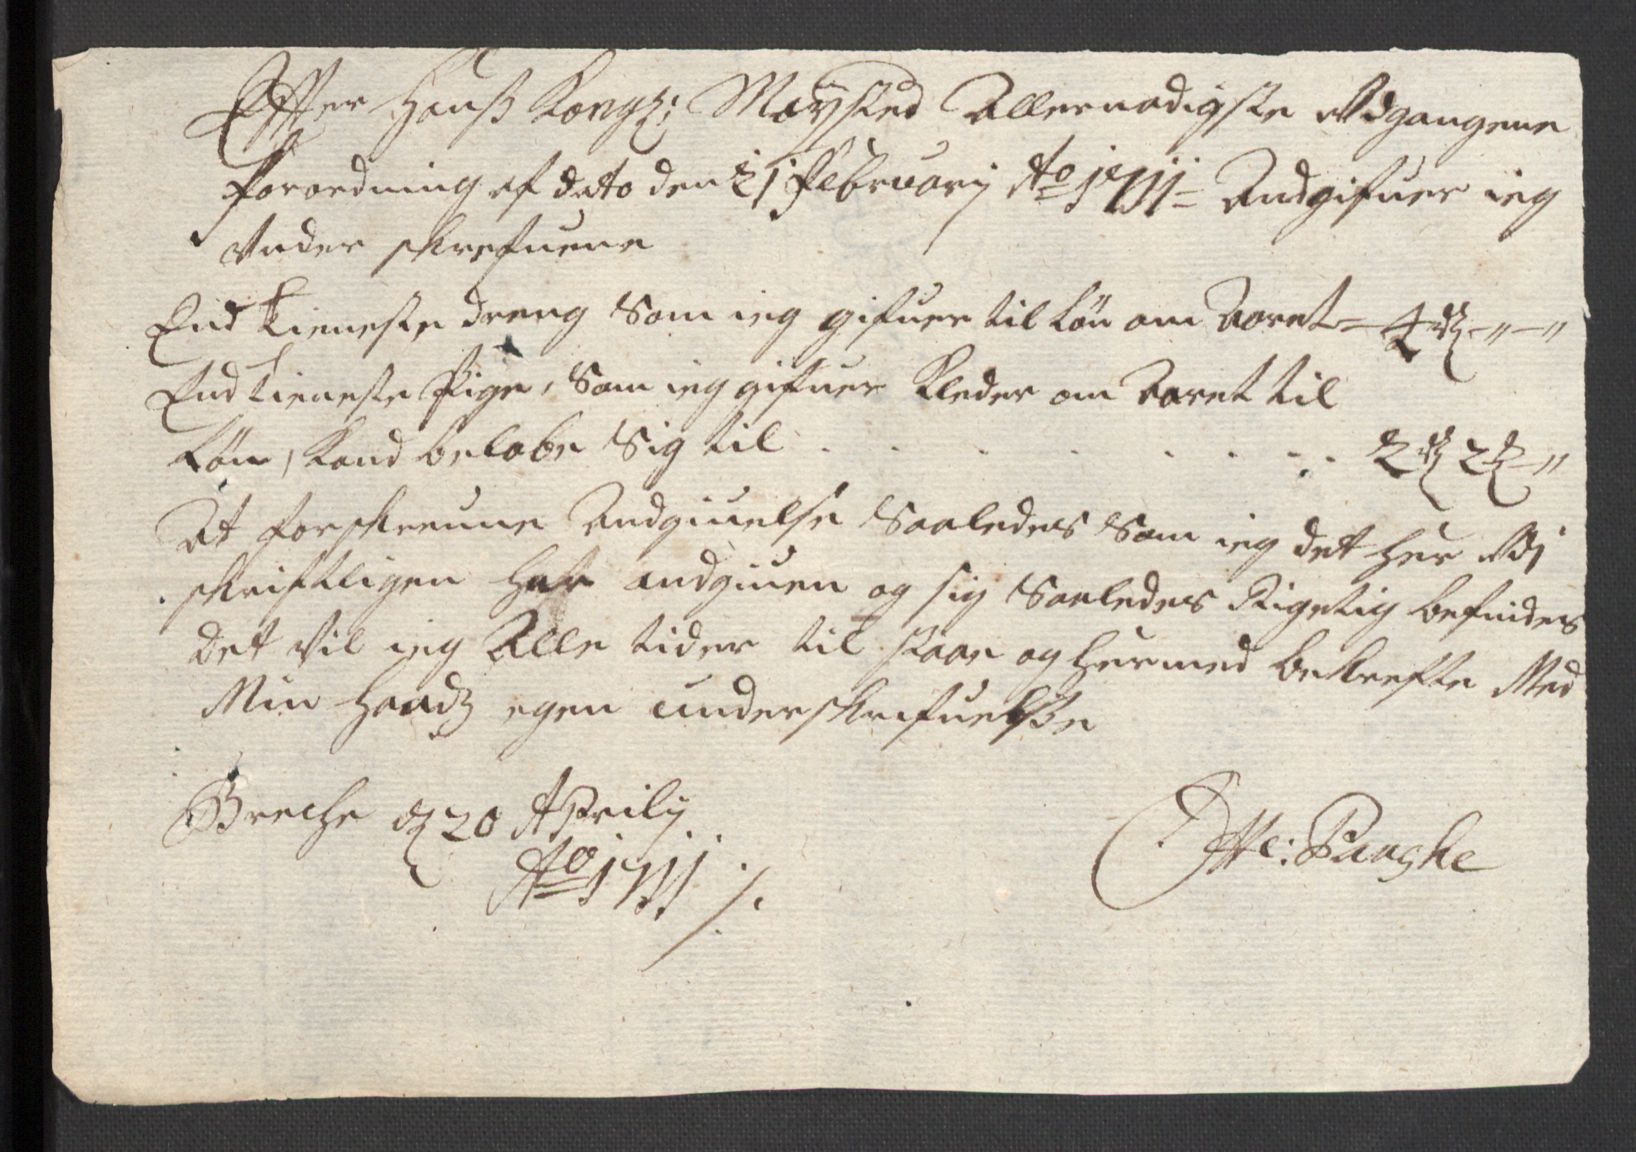 Effter Hanß Kongl: Mayested Allernadigste Udgangene
forordning af dato den 21 Februarij Ao 1711 Andgifuer ieg
Under skrefuene
End tieneste dreng Som ieg gifuer til Løn om Aaret - 4 rd - " - "
End tieneste Pige, Som ieg gifuer Kleder om Aaret til
Løn, Kand beløbe Sig til . . . . . . . 2 rd 2 - "
At forskreune Andgiuelse Saaledes Som ieg det her Udj
skriftligen Har andgiuen og sig Saaledes Rigetig befindes
det Vil ieg Alle tider til staae og hermed bekrefte Med
Min Haadz egen underskrifuelße
Breche d 20 Aprilij
Ao 1711 /.
Otte: Panshe